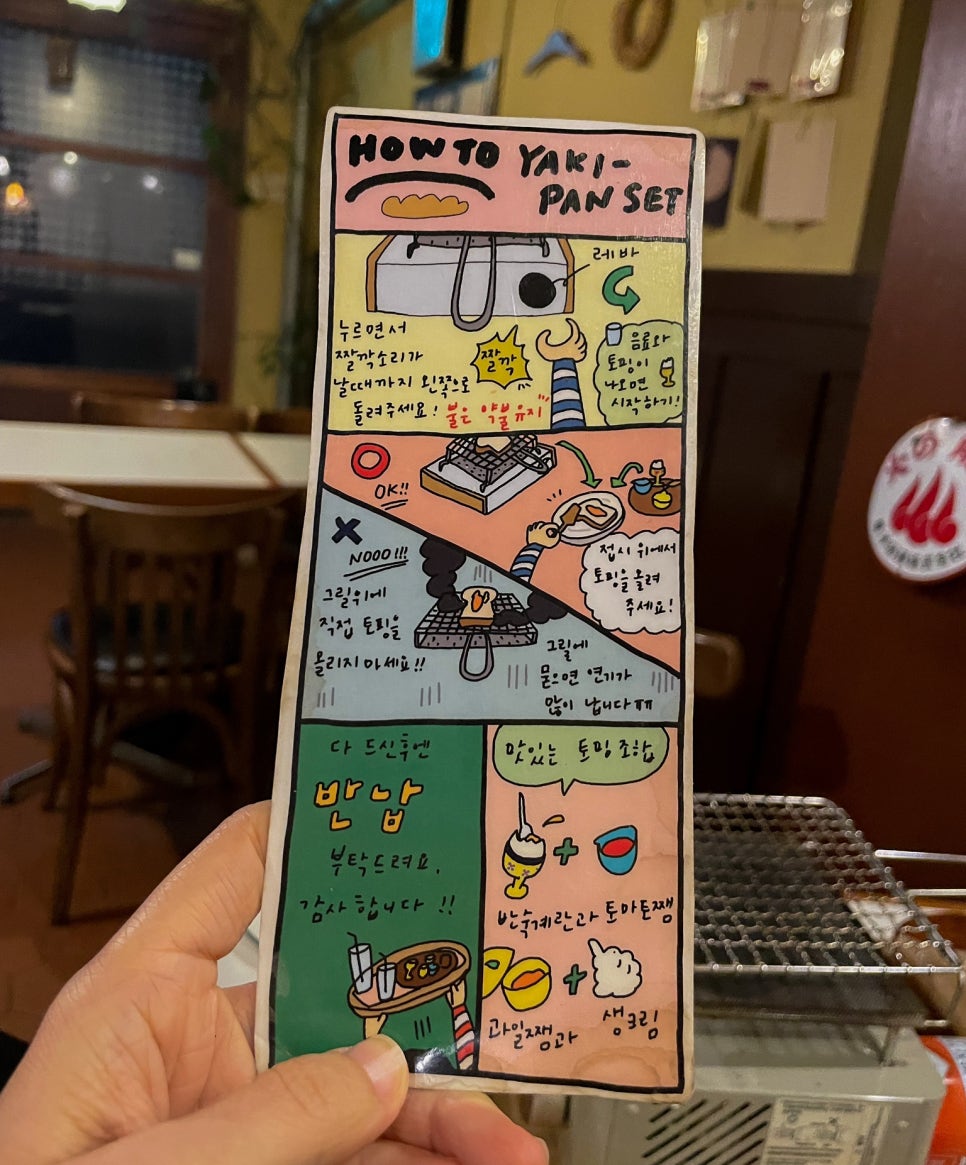 HOW TO YAKI-
PAN SET
레바
누르면서
짤깍소리가
날때까지 왼쪽으로
돌려주세요! 불은 약불유지
짤깍
음료와
토핑이
나오면
시작하기!
OK!!
접시 위에서
토핑을 올려
주세요!
NOOO!!!
그릴위에
직접 토핑을
올리지마세요!!
그릴에
묻으면 연기가
많이 납니다ㅠㅠ
다 드신후엔
반납
부탁드려요.
감사합니다 !!
맛있는 토핑조합
+
반숙계란과 토마토쨈
+
과일쨈과 생크림